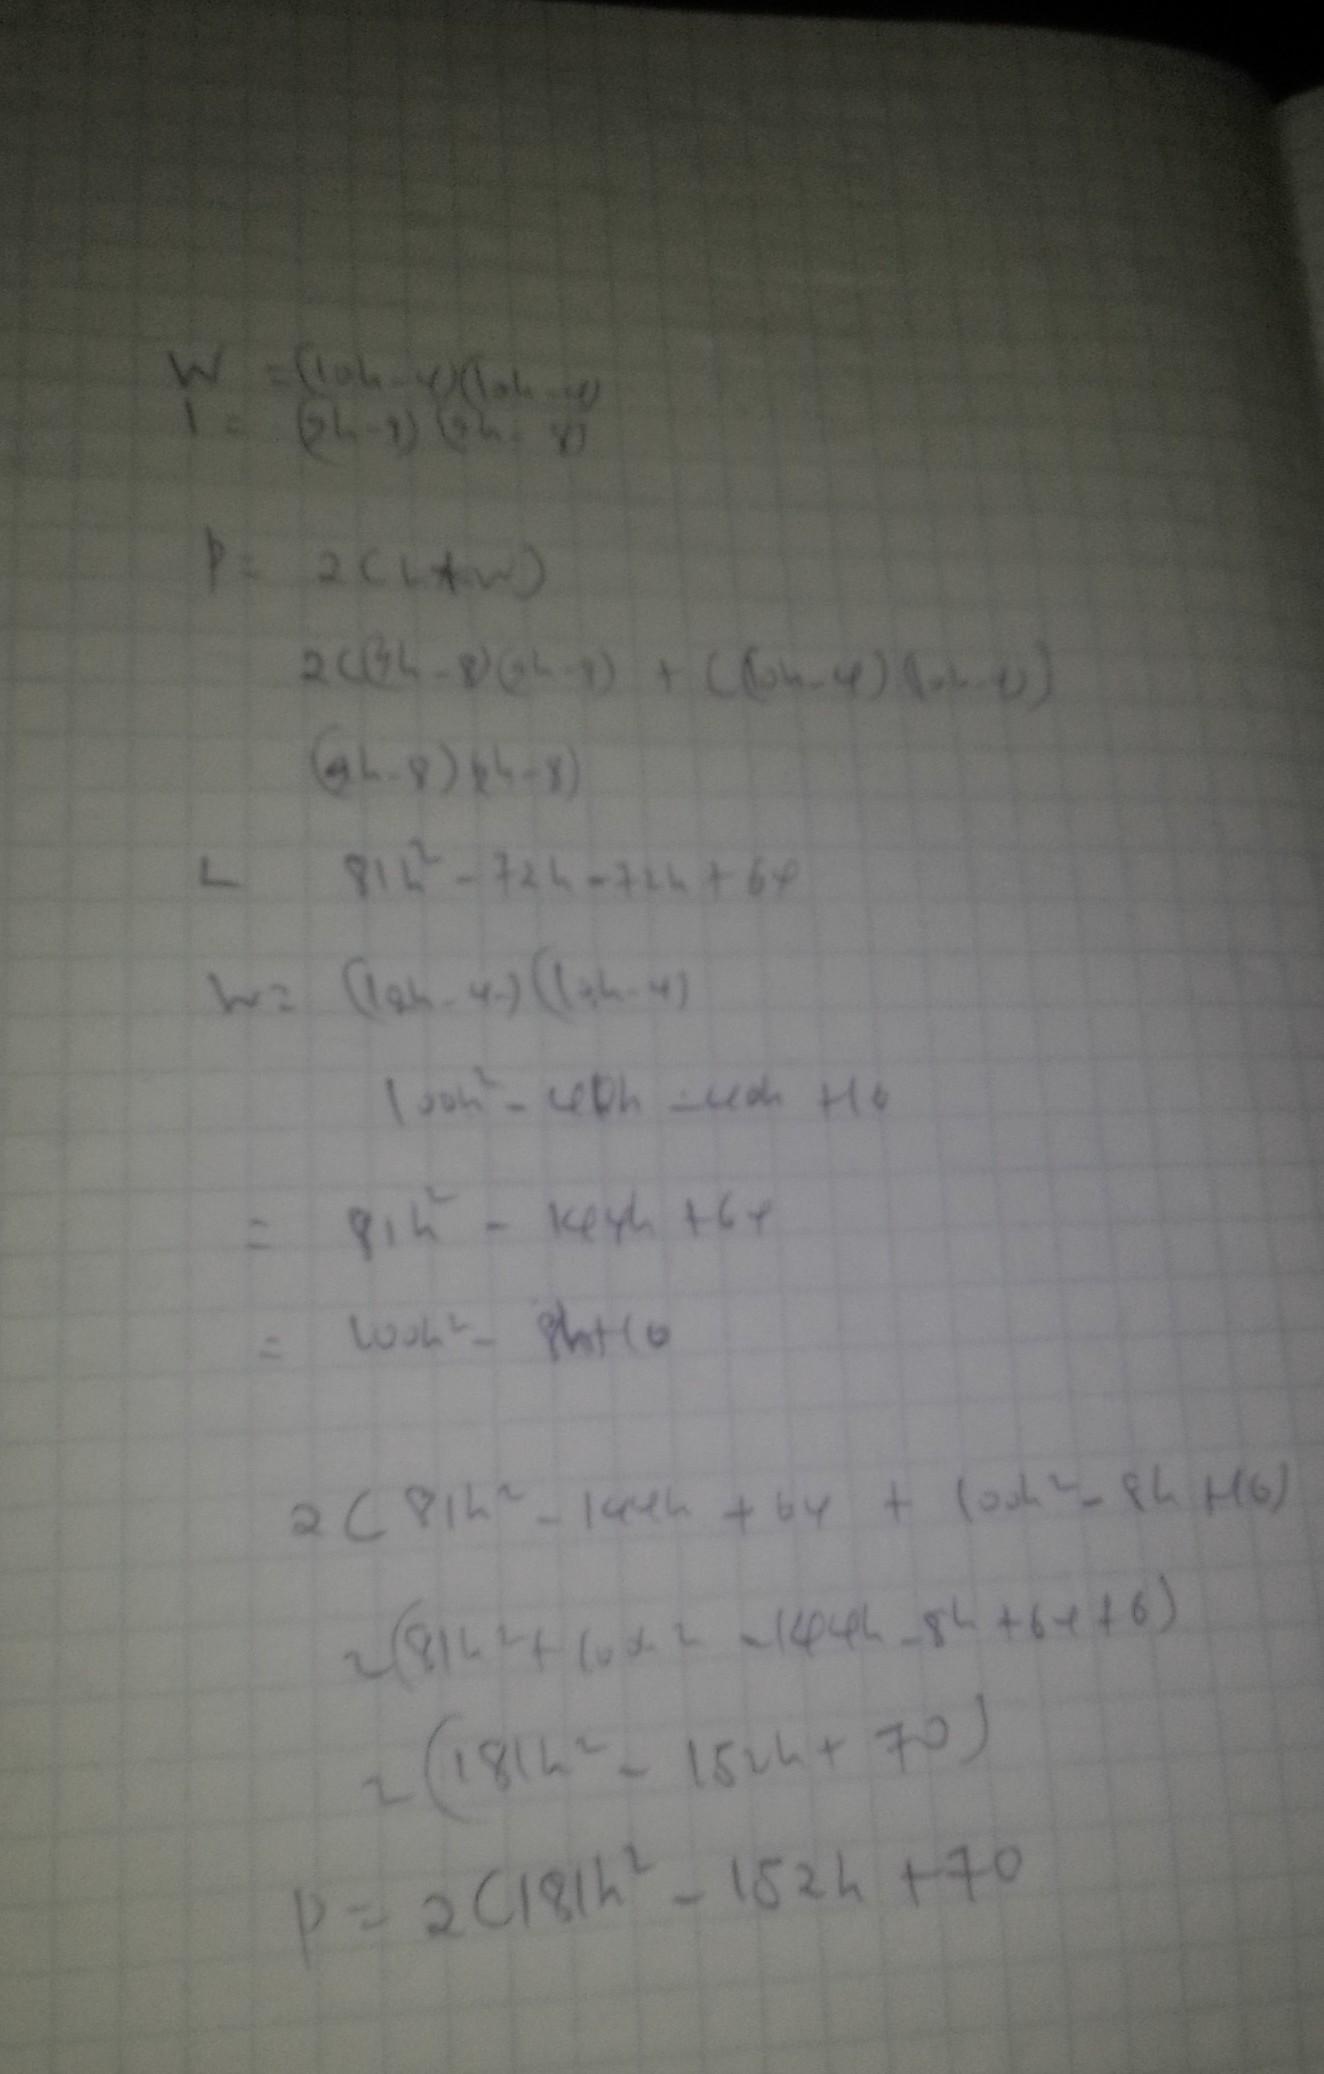 W = (10h-4)(10h-4)
l = (9h-8)(9h-8)
P = 2(L+W)
2((9h-8)(9h-8) + ((10h-4)(10h-4)
(9h-8)(9h-8)
L 81h² - 72h - 72h + 64
W = (10h-4)(10h-4)
100h² - 40h - 40h +16
= 81h² - 144h + 64
= 100h² - 8h+16
2(81h² - 144h + 64 + 100h² - 8h +16)
2(81h² + 100h² - 144h - 8h + 64 + 6)
2(181h² - 152h + 70)
P = 2(181h² - 152h + 70